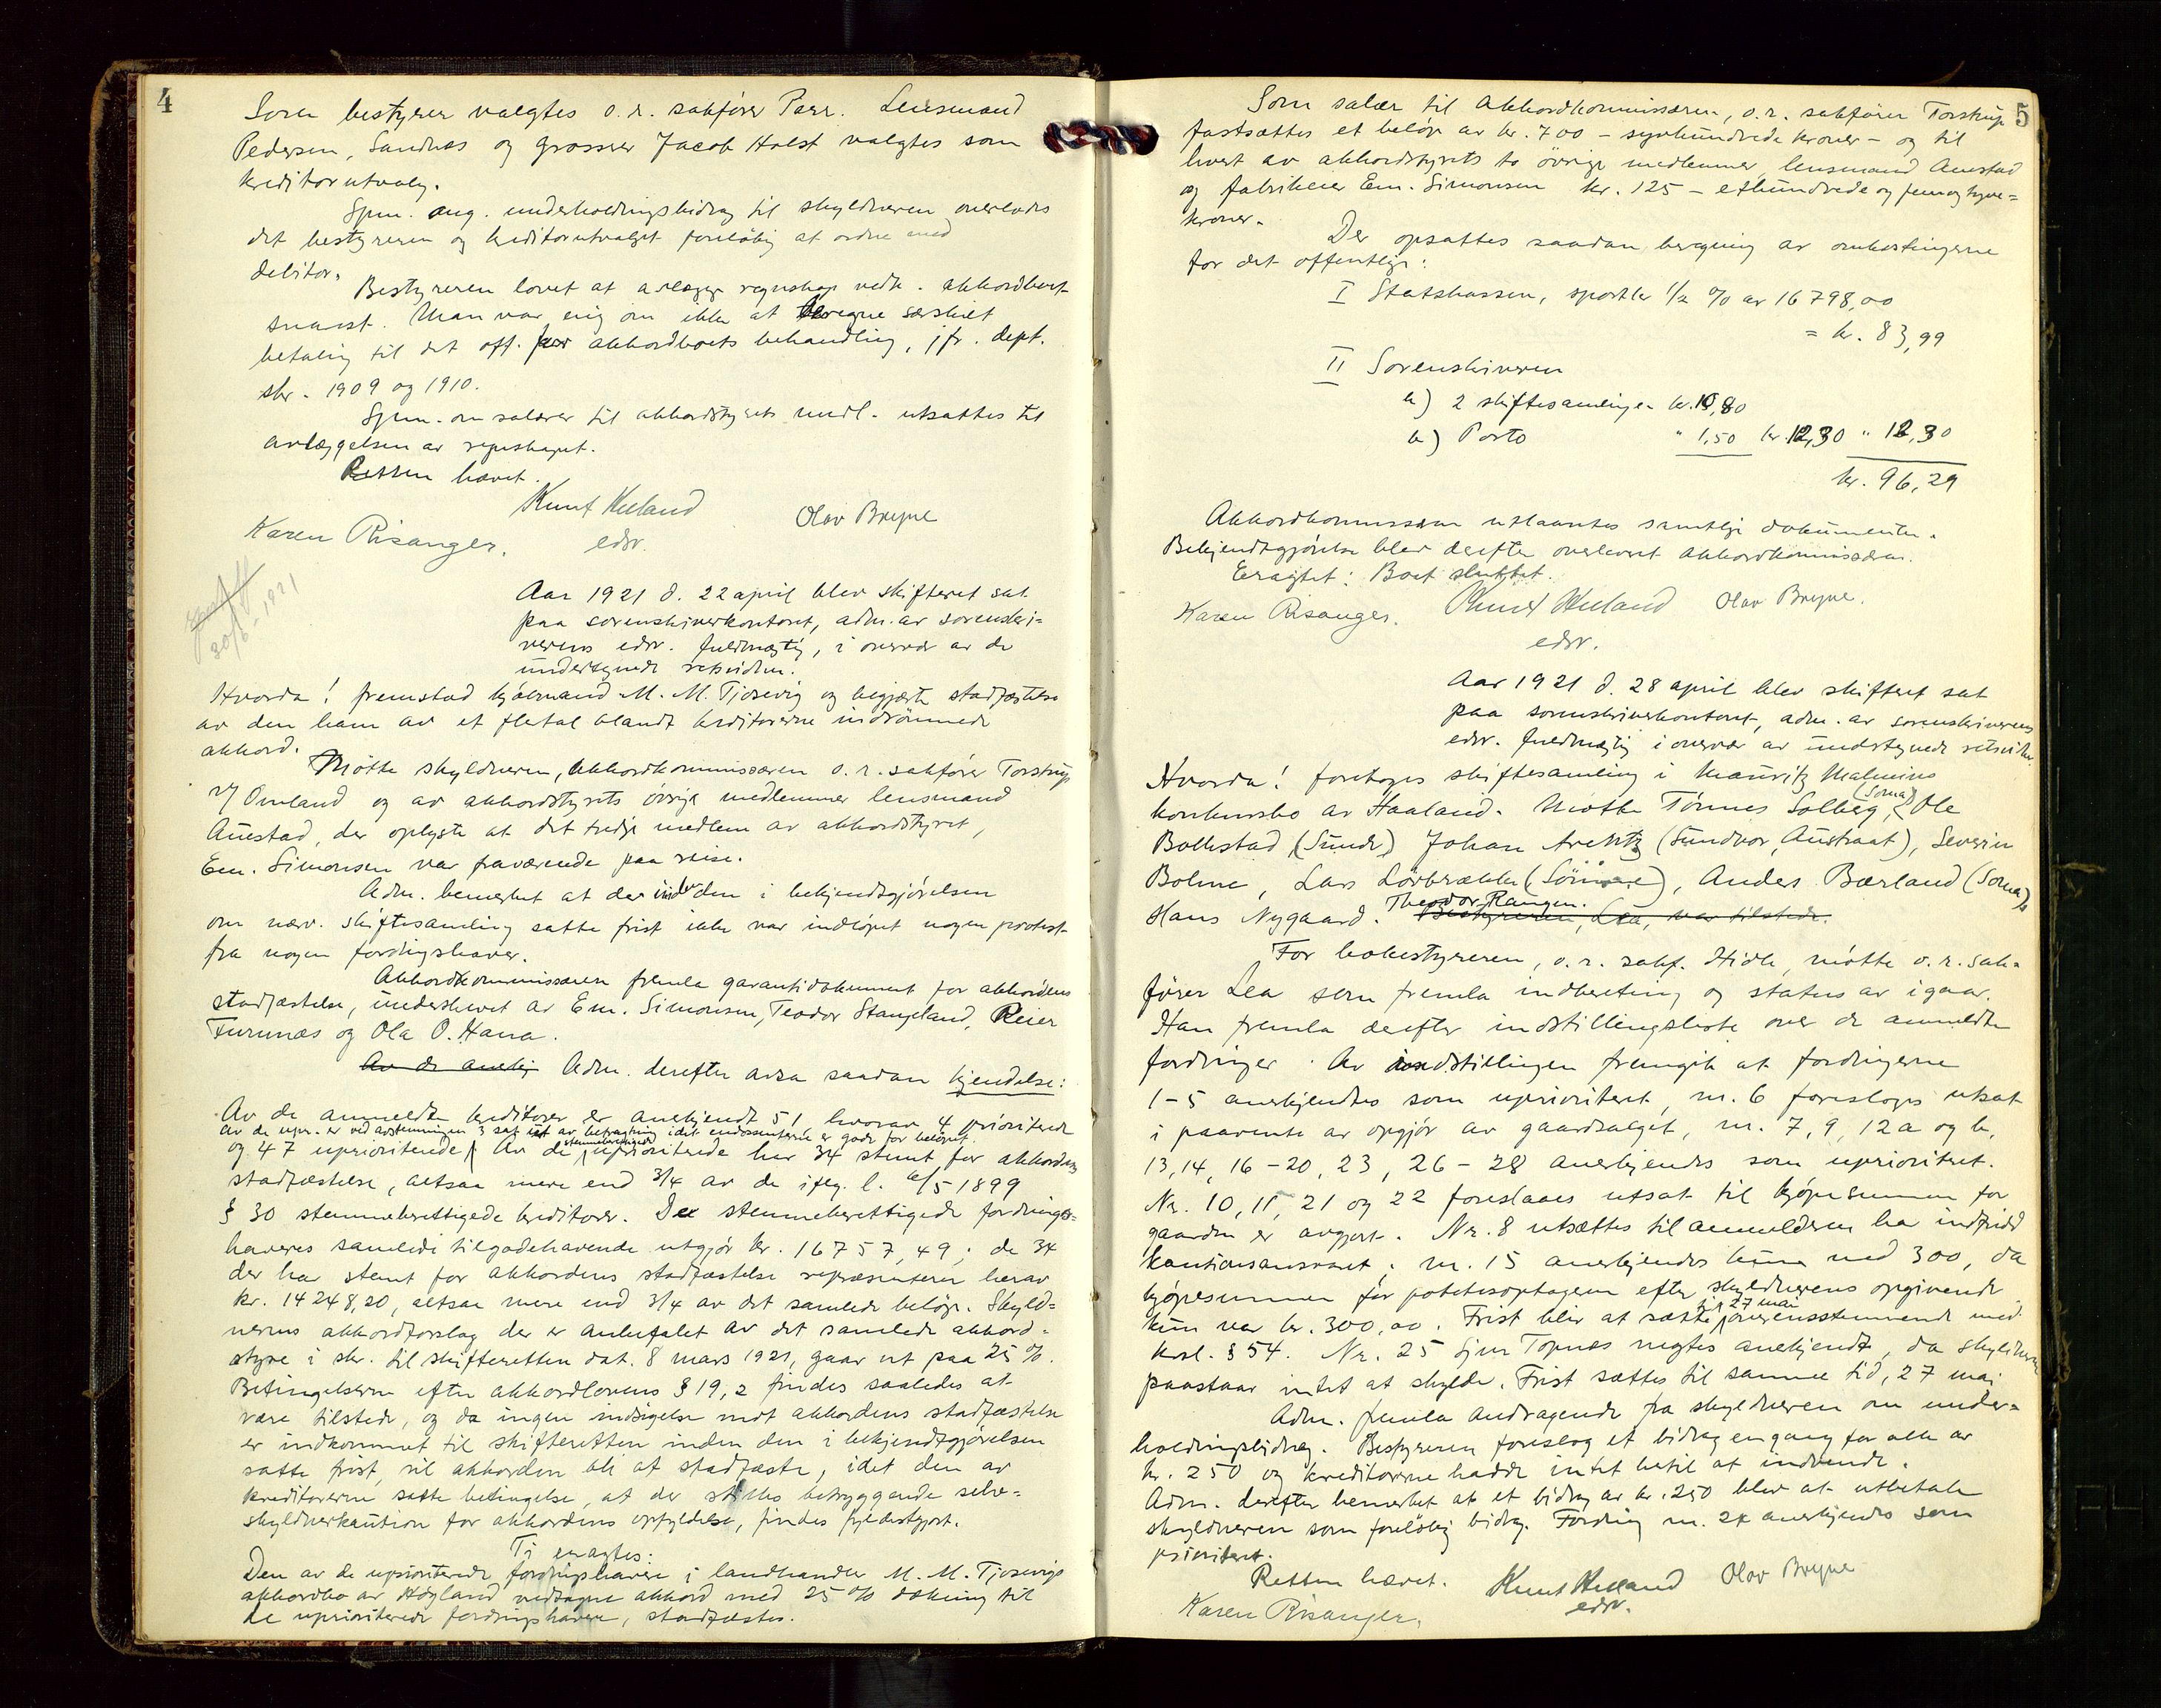 4
Som bestyrer valgtes o.r. sakfører Parr. Lensmand
Pedersen, Sandnæs og grosserer Jacob Holst valgtes som
kreditorutvalg.
Spm. ang. underholdningsbidrag til skyldneren overlodes
det bestyreren og kreditorutvalget foreløbig at ordne med
debitor.
Bestyreren lovet at avlægge regnskap vedk. akkordboet
snarest. Man var enig om ikke at beregne særskilt
betaling til det off. for akkordboets behandling, jfr. dept.
skr. 1909 og 1910.
Spm. om salærer til akkordstyrets medl. utsattes til
avlæggelsen av regnskapet.
Retten hævet.
Knut Hëland Olav Bryne
Karen Risanger. edsv.
30/6-1921
Aar 1921 d. 22 april blev skifteret sat
paa sorenskriverkontoret, adm. av sorenskri=
verens edsv. fuldmægtig, i overvær av de
undertegnede retsvidner.
Hvorda! fremstod kjøbmand M. M. Tjosevig og begjærte stadfæstelse
av den ham av et flertal blandt kreditorerne indrømmede
akkord.
Møtte skyldneren, akkordkommissæren o.r. sakfører Torstrup
v/ Omland og av akkordstyrets øvrige medlemmer lensmand
Auestad, der oplyste at det tredje medlem av akkordstyret,
Em. Simonsen var fraværende paa reise.
Adm. bemerket at der inden den i bekjendtgjørelsen
om nærv. skiftesamling satte frist ikke var indløpet nogen protest
fra nogen fordringshaver.
Akkordkommissæren fremla garantidokument for akkordens
stadfæstelse, underskrevet av Em. Simonsen, Teodor Stangeland, Reier
Furunæs og Ola O. Hana.
Av de anerkj Adm. derefter avsa saadan kjendelse:
Av de anmeldte kreditorer er anerkjendt 51 hvorav 4 prioriterede
av de upr. er ved avstemningen 3 sat ut av betragtning idet endossenterne er gode for beløpet.
og 47 uprioriterede. Av de stemmeberettigede uprioriterede har 34 stemt for akkordens
stadfæstelse, altsaa mere end 3/4 av de ifølg. l. 6/5 1899
§ 30 stemmeberettigede kreditorer. De stemmeberettigede fordrings=
haveres samlede tilgodehavende utgjør kr. 16757,49; de 34
der har stemt for akkordens stadfæstelse repræsenterer herav
kr. 14248,20, altsaa mere end 3/4 av det samlede beløp. Skyld=
nerens akkordforslag der er anbefalet av det samlede akkord=
styre i skr. til skifteretten dat. 8 mars 1921, gaar ut paa 25 %.
Betingelserne efter akkordlovens § 19,2 findes saaledes at
være tilstede, og da ingen indsigelse mot akkordens stadfæstelse
er indkommet til skifteretten inden den i bekjendtgjørelsen
satte frist, vil akkorden bli at stadfæste, idet den av
kreditorerne satte betingelse, at der stilles betryggende selv=
skyldnerkaution for akkordens opfyldelse, findes fyldestgjort.
Ti eragtes:
Den av de uprioriterede fordringshavere i landhandler M. M. Tjosevigs
akkordbo av Høgland vedtagne akkord med 25 % dækning til
de uprioriterede fordringshavere, stadfæstes.
5
Som salær til akkordkommissæren, o.r. sakfører Torstrup
fastsættes et beløp av kr. 700 - syvhundrede kroner - og til
hvert av akkordstyrets to øvrige medlemmer, lensmand Auestad
og fabrikeier Em. Simonsen kr. 125 - ethundrede og femogtyve=
kroner.
Der opsattes saadan beregning av omkostningerne
for det offentlige:
I Statskassen, sportler 1/2 % av 16798,00
= kr. 83,99
II Sorenskriveren
a) 2 skiftesamlinger kr. 10,80
b) Porto " 1,50 kr. 12,30 " 12,30
kr. 96,29
Akkordkommissæren utlaantes samtlige dokumenter.
Bekjendtgjørelse blev derefter overlevert akkordkommissæren.
Eragtet: Boet sluttet.
Karen Risanger. Knut Hëland Olav Bryne.
edsv.
Aar 1921 d. 28 april blev skifteret sat
paa sorenskriverkontoret, adm. av sorenskriverens
edsv. fuldmægtig i overvær av undertegnede retsvidner.
Hvorda! foretoges skiftesamling i Mauritz Malmins
konkursbo av Haaland. Møtte Tønnes Solberg, (Soma) Ole
Bollestad (Sunde) Johan Arentz (Sundvor, Austraat), Severin
Bolme, Lars Lørbrække (Sørnæs), Anders Bærland (Soma),
Hans Nygaard. Theodor Rangen. Bestyreren, Lea, var tilstede.
For bobestyreren, o.r. sakf. Hidle, møtte o.r. sak=
fører Lea som fremla indberetning og status av igaar.
Han fremla derefter indstillingsliste over de anmeldte
fordringer. Av indstillingen fremgik at fordringerne
1-5 anerkjendtes som uprioritert, nr. 6 foresloges utsat
i paavente av opgjør av gaardsalget, nr. 7, 9, 12a og b,
13, 14, 16-20, 23, 26-28 anerkjendes som uprioritert.
Nr. 10, 11, 21 og 22 foreslaaes utsat til kjøpesummen for
gaarden er avgjort. Nr. 8 utsættes til anmelderen har indfridd
kautionsansvaret. nr. 15 anerkjendes kun med 300, da
kjøpesummen for potetesoptageren efter skyldnerens opgivende
kun var kr. 300,00. Frist blir at sætte til 27 mai overensstemmende med
kr.l. § 54. Nr. 25 Topnæs negtes anerkjendt, da skyldneren
paastaar intet at skylde. Frist sættes til samme tid, 27 mai
Adm. fremla andragende fra skyldneren om under=
holdningsbidrag. Bestyreren foreslog et bidrag engang for alle av
kr. 250 og kreditorerne hadde intet hertil at indvende.
Adm. derefter bemerket at et bidrag av kr. 250 blev at utbetale
skyldneren som foreløbig bidrag. Fordring nr. 24 anerkjendes som
prioritert.
Retten hævet. Knut Hëland Olav Bryne
edsv.
Karen Risanger.